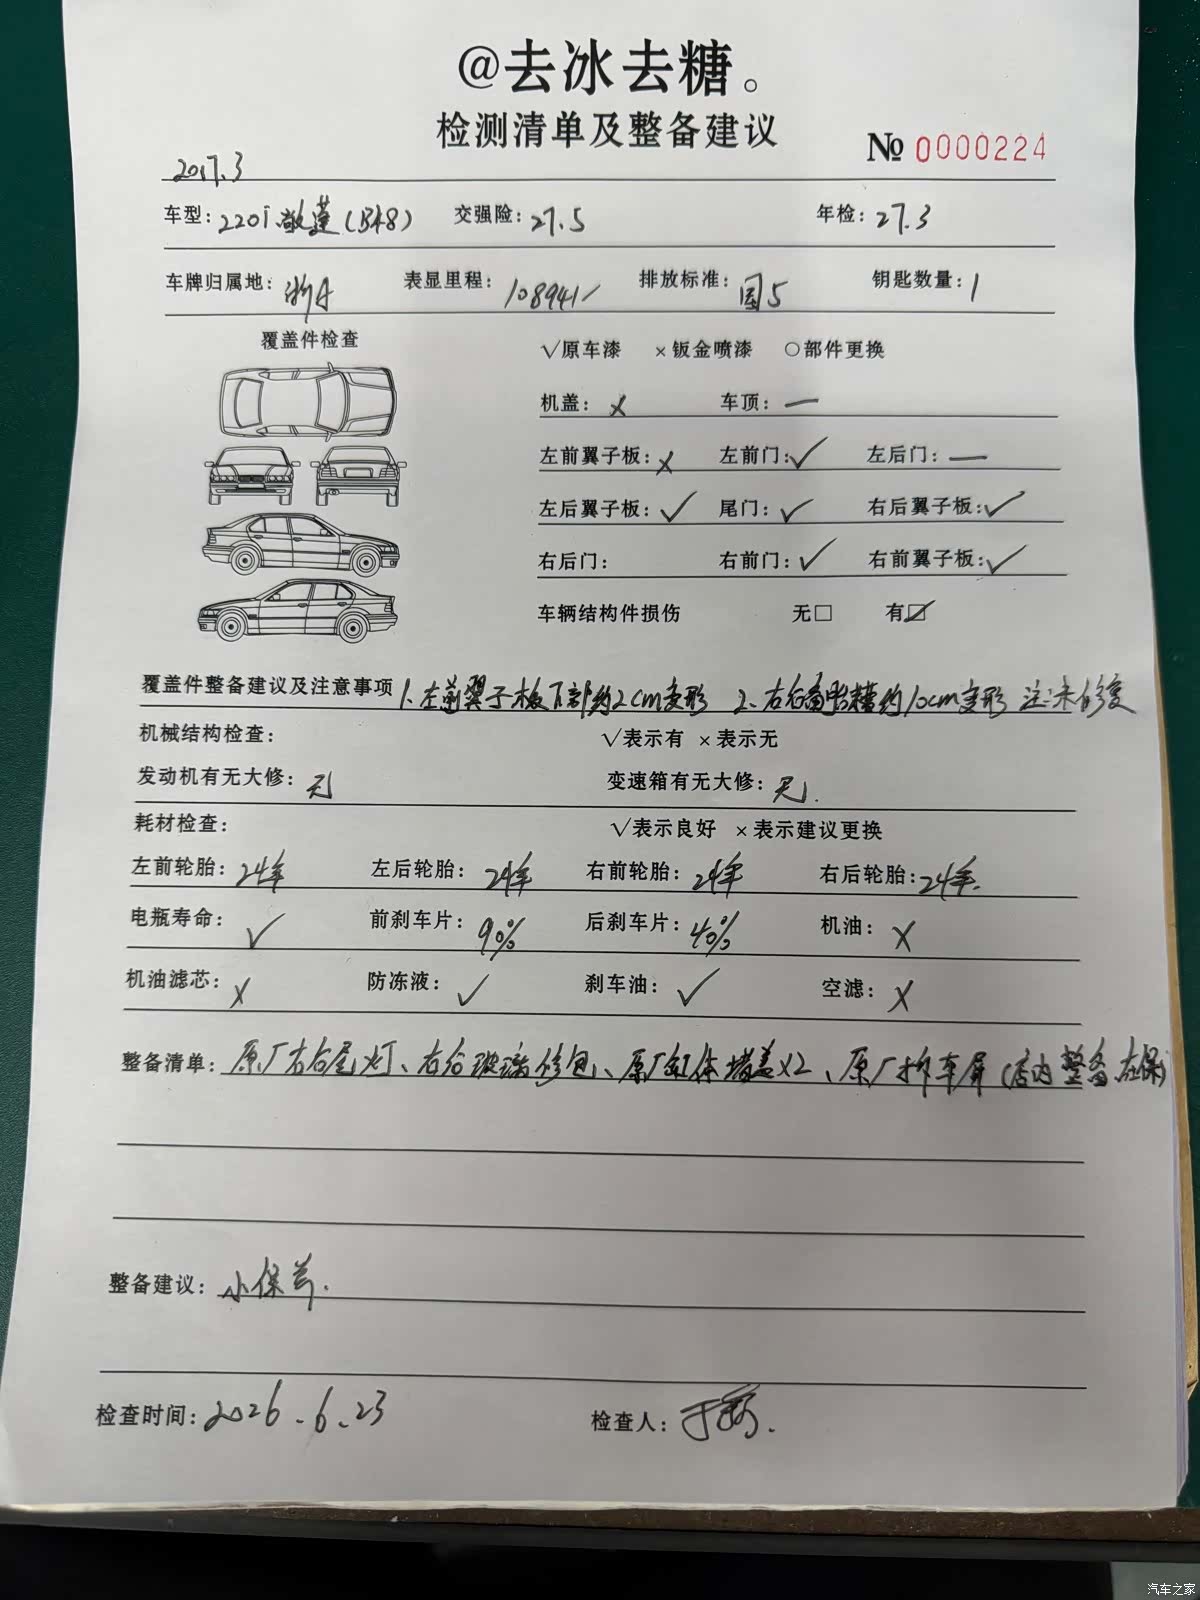 @去冰去糖。
检测清单及整备建议
№ 0000224
2017.3
车型：220i 敞篷（B48） 交强险：27.5 年检：27.3
车牌归属地：浙A 表显里程：108941 排放标准：国5 钥匙数量：1
覆盖件检查 √原车漆 ×钣金喷漆 ○部件更换
机盖：× 车顶：—
左前翼子板：× 左前门：√ 左后门：—
左后翼子板：√ 尾门：√ 右后翼子板：√
右后门： 右前门：√ 右前翼子板：√
车辆结构件损伤 无□ 有☑
覆盖件整备建议及注意事项 1、左前翼子板下部约2cm变形 2、右后备胎槽约10cm变形 注：未修复
机械结构检查： √表示有 ×表示无
发动机有无大修：无 变速箱有无大修：无.
耗材检查： √表示良好 ×表示建议更换
左前轮胎：24年 左后轮胎：24年 右前轮胎：24年 右后轮胎：24年.
电瓶寿命：√ 前刹车片：90% 后刹车片：40% 机油：×
机油滤芯：× 防冻液：√ 刹车油：√ 空滤：×
整备清单：原厂右后尾灯、右后玻璃修包、原厂缸体堵盖×2、原厂拆车屏（店内整备 在保）
整备建议：小保养.
检查时间：2026.6.23 检查人：
汽车之家